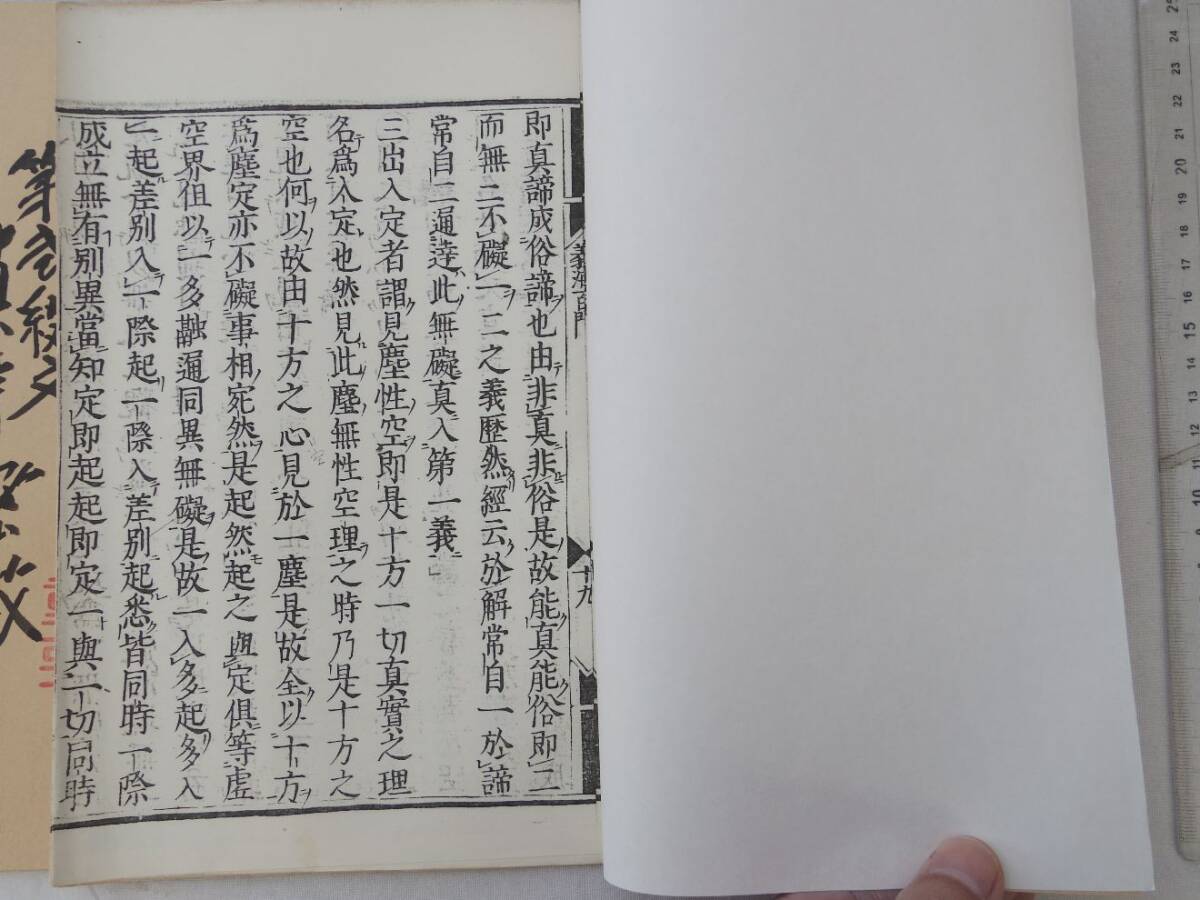 即真諦成俗諦也由非真非俗是故能真能俗即二
而無二不礙一二之義歴然經云於解常自一於諦
常自二通達此無礙真入第一義
三出入定者謂見塵性空即是十方一切真實之理
名爲入定也然見此塵無性空理之時乃是十方之
空也何以故由十方之心見於一塵是故全以十方
爲塵定亦不礙事相宛然是起然起之與定俱等虚
空界伹以一多融通同異無礙是故一入多起多入
一起差別入一際起一際入差別起悉皆同時一際
成立無有別異當知定即起起即定一與一切同時
義海百門
十九